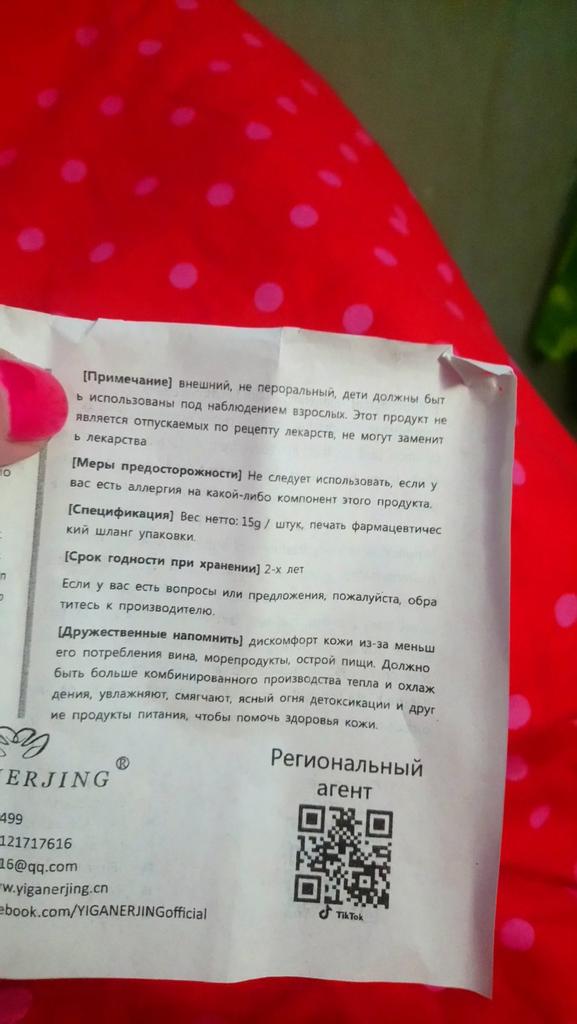 [Примечание] внешний, не пероральный, дети должны быт
ь использованы под наблюдением взрослых. Этот продукт не
является отпускаемых по рецепту лекарств, не могут заменит
ь лекарства
[Меры предосторожности] Не следует использовать, если у
вас есть аллергия на какой-либо компонент этого продукта.
[Спецификация] Вес нетто: 15g / штук, печать фармацевтичес
кий шланг упаковки.
[Срок годности при хранении] 2-х лет
Если у вас есть вопросы или предложения, пожалуйста, обра
титесь к производителю.
[Дружественные напомнить] дискомфорт кожи из-за меньш
его потребления вина, морепродукты, острой пищи. Должно
быть больше комбинированного производства тепла и охлаж
дения, увлажняют, смягчают, ясный огня детоксикации и друг
ие продукты питания, чтобы помочь здоровья кожи.
ERJING®
499
121717616
16@qq.com
w.yiganerjing.cn
ebook.com/YIGANERJINGofficial
Региональный
агент
TikTok